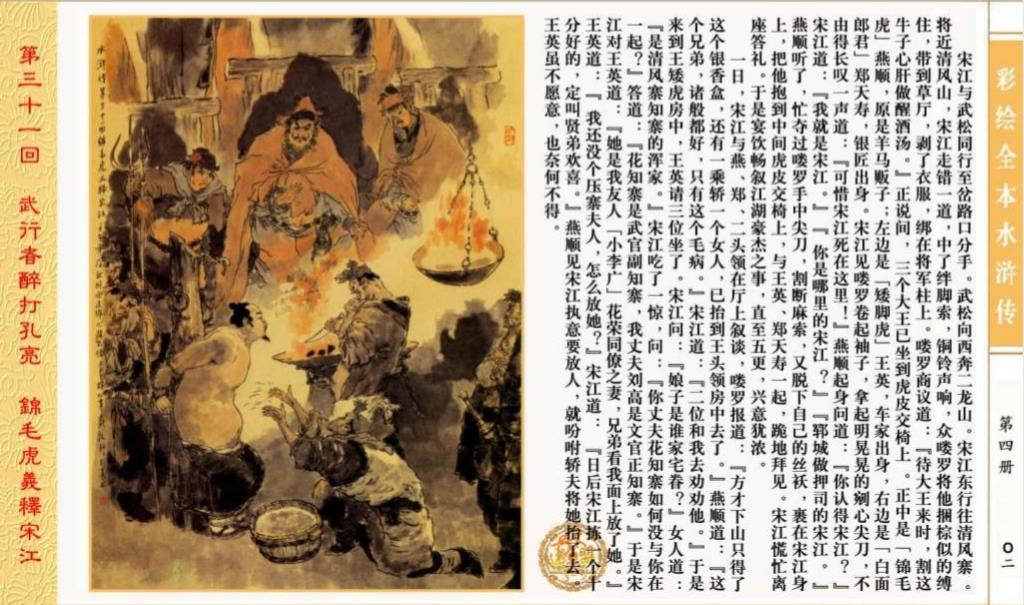 彩绘全本水浒传
第四册
〇二
宋江与武松同行至岔路口分手。武松向西奔二龙山。宋江东行往清风寨。
将近清风山，宋江走错一道，中了绊脚索，铜铃声响，众喽罗将他捆棕似的缚
住，带到草厅，剥了衣服，绑在将军柱上。喽罗商议道：『待大王来时，割这
牛子心肝做醒酒汤。』正说间，三个大王已坐到虎皮交椅上。正中是「锦毛
虎」燕顺，原是羊马贩子；左边是「矮脚虎」王英，车家出身，右边是「白面
郎君」郑天寿，银匠出身。宋江见喽罗卷起袖子，拿起明晃晃的剜心尖刀，不
由得长叹一声道：『可惜宋江死在这里！』燕顺起身问道：『你认得宋江？』
宋江道：『我就是宋江。』『你是哪里的宋江？』『郓城做押司的宋江。』
燕顺听了，忙夺过喽罗手中尖刀，割断麻索，又脱下自己的丝袄，裹在宋江身
上，把他抱到中间虎皮交椅上，与王英、郑天寿一起，跪地拜见。宋江慌忙离
座答礼。于是宴饮畅叙江湖豪杰之事，直至五更，兴意犹浓。
一日，宋江与燕、郑、二头领在厅上叙谈，喽罗报道：『方才下山只得了
这个银香盒，还有一乘轿一个女人，已抬到王头领房中去了。』燕顺道：『这
个兄弟，诸般都好，只有这个毛病。』宋江道：『二位和我去劝劝他。』于是
来到王矮虎房中，王英请三位坐了。宋江问：『娘子是谁家宅眷？』女人道：
『是清风寨知寨的浑家。』宋江吃了一惊，问：『你丈夫花知寨如何没与你在
一起？』答道：『花知寨是武官副知寨，我丈夫刘高是文官正知寨。』于是宋
江对王英道：『她是我友人「小李广」花荣同僚之妻，兄弟看我面上放了她。』
王英道：『我还没个压寨夫人，怎么放她？』宋江道：『日后宋江拣一个十
分好的，定叫贤弟欢喜。』燕顺见宋江执意要放人，就吩咐轿夫将她抬了去。
王英虽不愿意，也奈何不得。
第三十一回 武行者醉打孔亮 錦毛虎義釋宋江